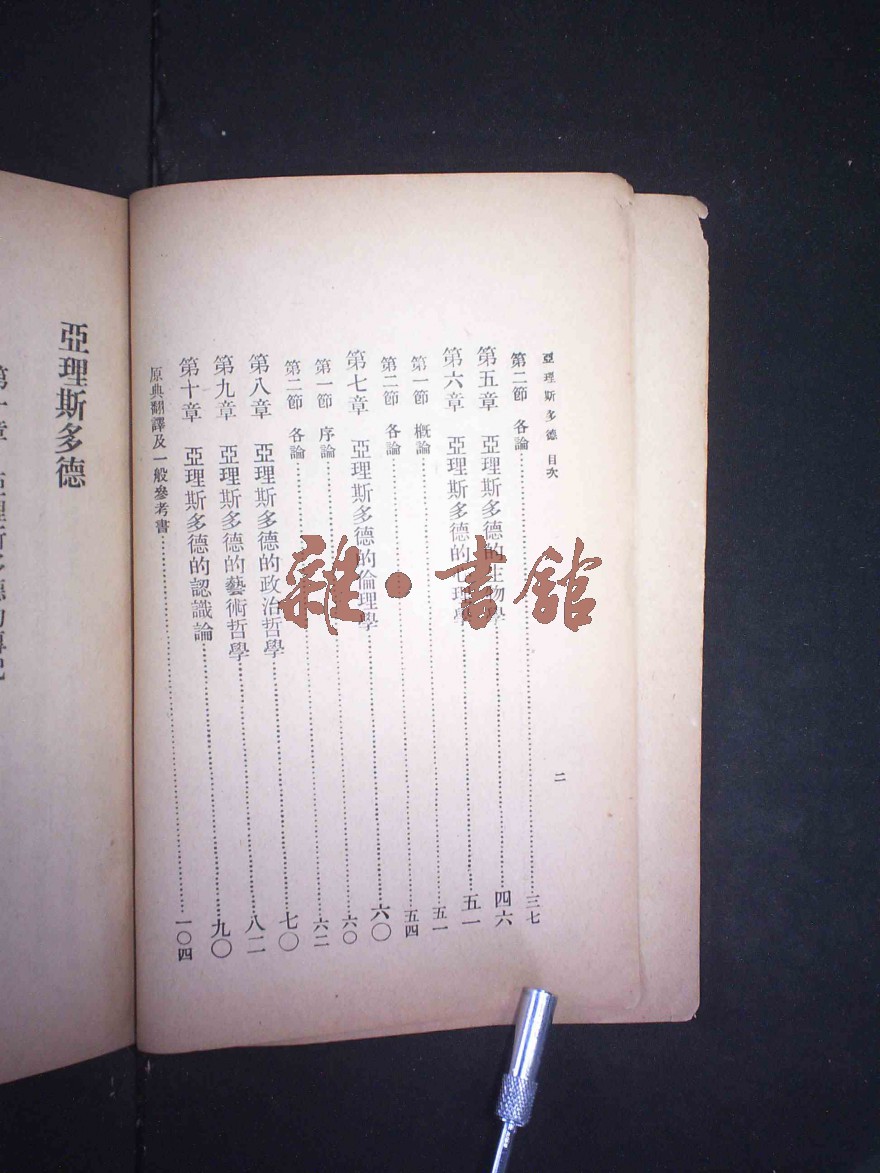 亞理斯多德 目次 二
第二節 各論……三七
第五章 亞理斯多德的生物學……四六
第六章 亞理斯多德的心理學……五一
第一節 概論……五一
第二節 各論……五四
第七章 亞理斯多德的倫理學……六〇
第一節 序論……六〇
第二節 各論……六二
第八章 亞理斯多德的政治哲學……七〇
第九章 亞理斯多德的藝術哲學……八二
第十章 亞理斯多德的認識論……九〇
原典翻譯及一般參考書……一〇四
亞理斯多德
雜·書館